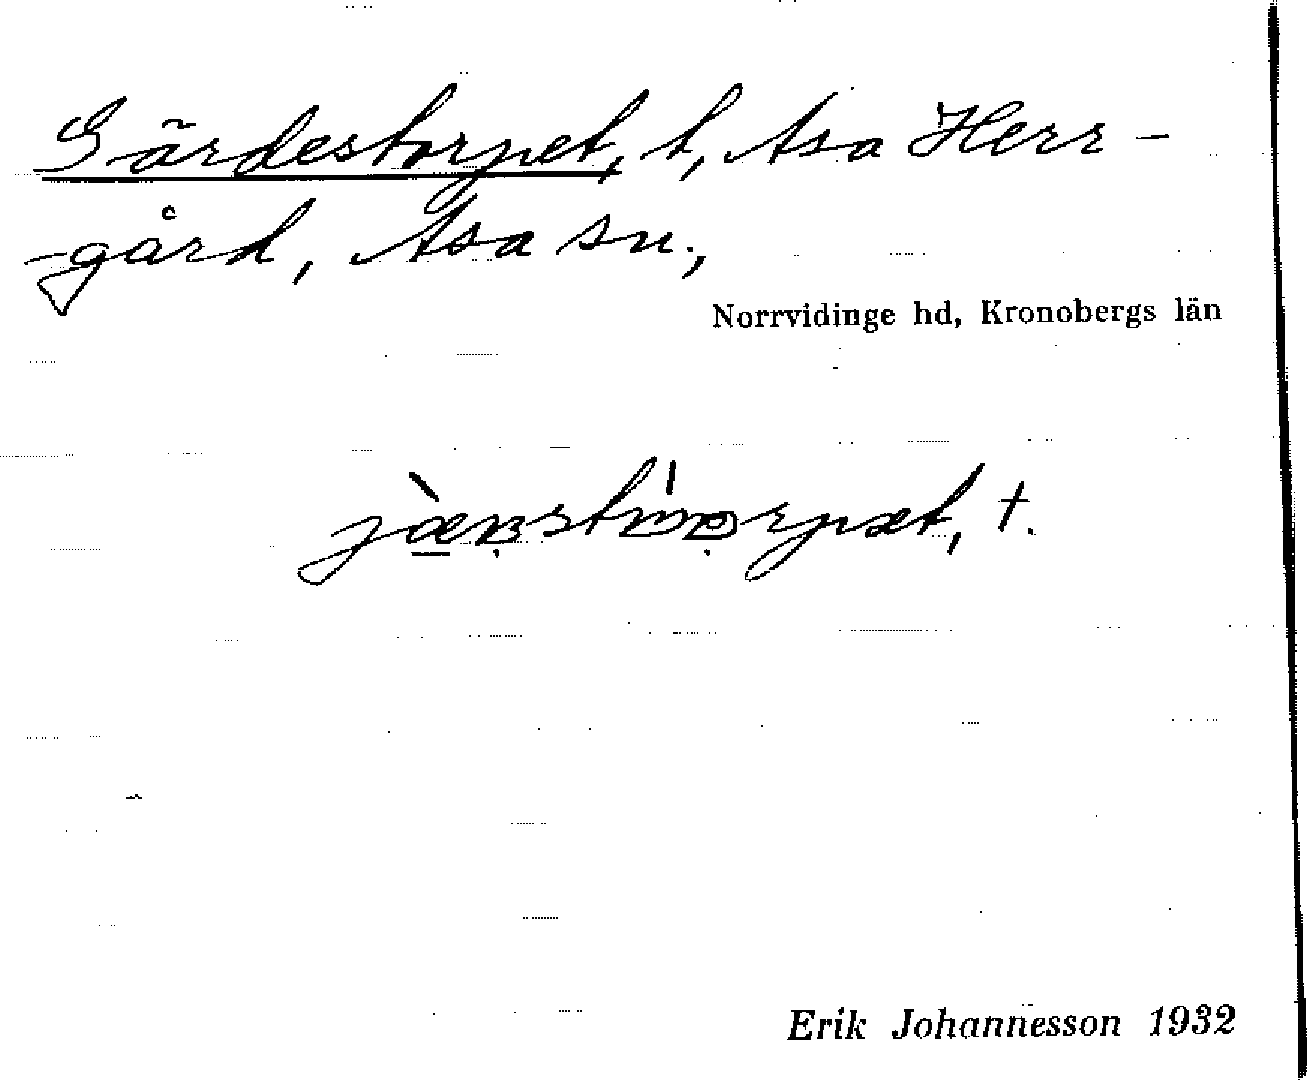 Gärdestorpet, t, Asa Herr-
-gård, Asa sn.,
Norrvidinge hd, Kronobergs län
t.
Erik Johannesson 1932